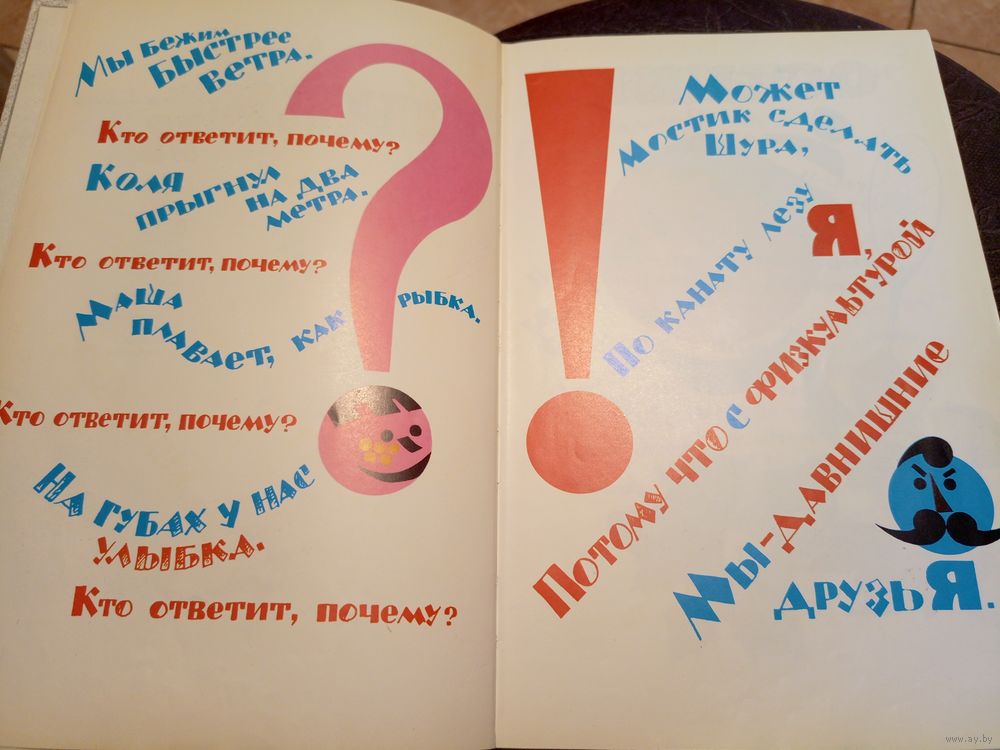 Мы бежим
быстрее
ветра.
Кто ответит, почему?
Коля
прыгнул
на два
метра.
Кто ответит, почему?
Маша
плавает, как рыбка.
Кто ответит, почему?
На губах у нас
улыбка.
Кто ответит, почему?
Может
мостик сделать
Шура,
По канату лезу
Я,
Потому что с физкульту́рой
Мы-давнишние
друзьЯ.
www.ay.by